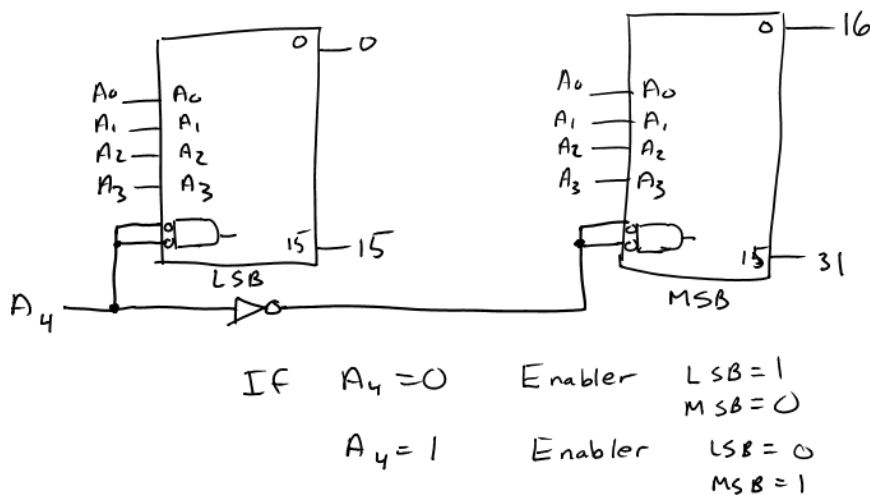 0 0
A0 A0
A1 A1
A2 A2
A3 A3
15 15
LSB
0 16
A0 A0
A1 A1
A2 A2
A3 A3
15 31
MSB
A4
If A4 = 0 Enabler LSB = 1
MSB = 0
A4 = 1 Enabler LSB = 0
MSB = 1